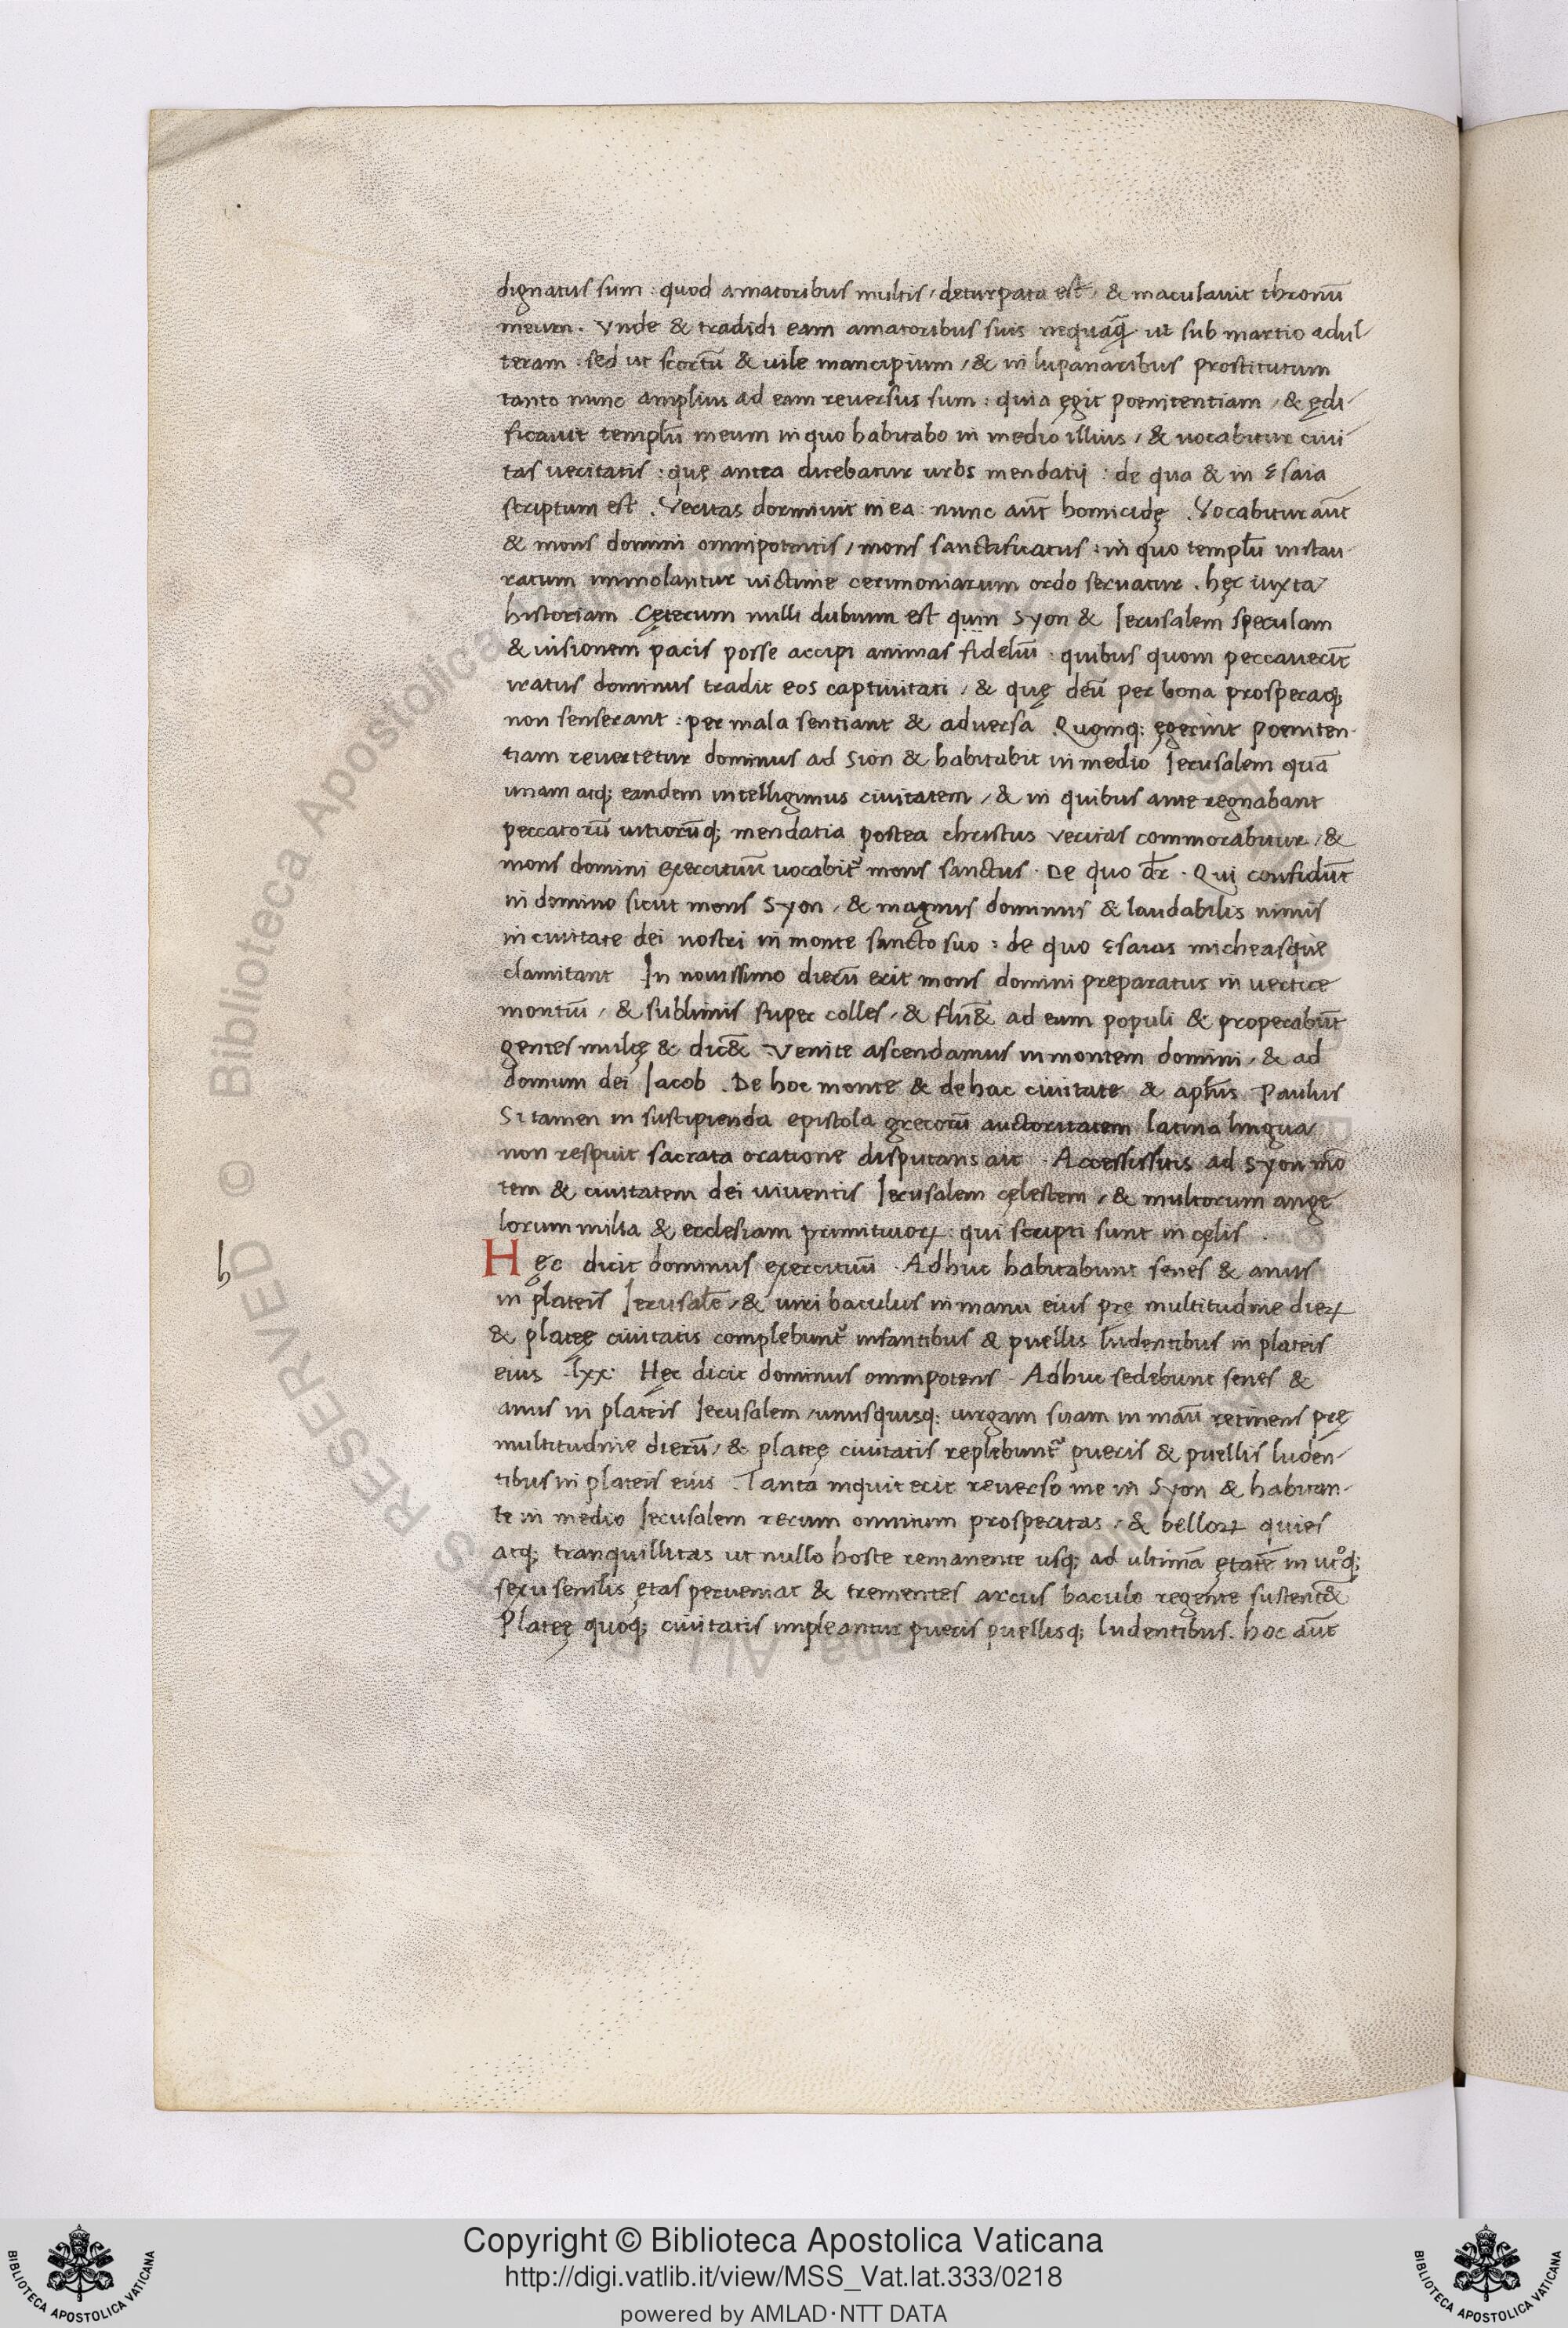 dignatus sum : quod amatoribus multis / deturpata est / & maculauit thronū
meum . Vnde & tradidi eam amatoribus suis nequaq̄ ut sub marito adul/
teram : sed ut scortū & uile mancipium / & in lupanaribus prostitutum
tanto nunc amplius ad eam reuersus sum : quia ęgit poenitentiam / & ędi/
ficauit templū meum in quo habitabo in medio illius / & uocabitur ciui
tas ueritatis : quę antea dicebatur urbs mendatij : de qua & in Esaia
scriptum est . Veritas dormiuit in ea : nunc aūt homicidę . Vocabitur aūt
& mons domini omnipotentis / mons sanctificatus : in quo templū instau-
ratum immolantur uictime cerimoniarum ordo seruatur . hęc iuxta
historiam . Cęterum nulli dubium est quin Syon & Jerusalem speculam
& uisionem pacis posse accipi animas fideliū : quibus quom peccauerīt
iratus dominus tradit eos captiuitati / & quę deū per bona prosperaq;
non senserant : per mala sentiant & aduersa . Quomq; ęgerint poeniten-
tiam reuertetur dominus ad Sion & habitabit in medio Jerusalem quā
unam atq; eandem intelligimus ciuitatem / & in quibus ante regnabant
peccatorū uitiorūq; mendatia postea christus veritas commorabitur / &
mons domini exercituū uocabit᷑ mons sanctus . De quo dr̄ . Qui confidūt
in domino sicut mons Syon / & magnus dominus & laudabilis nimis
in ciuitate dei nostri in monte sancto suo : de quo Esaias micheasque
clamitant In nouissimo dierū erit mons domini preparatus in uertice
montiū / & sublimis super colles / & flūe& ad eum populi & properabūt
gentes multę & dic& . Venite ascendamus in montem domini / & ad
domum dei Jacob . De hoc monte & de hac ciuitate & apl̄us Paulus
Si tamen in suscipienda epistola grecorū auctoritatem latina lingua
non respuit sacrata oratione disputans ait . Accessissitis ad Syon mō
tem & ciuitatem dei uiuentis Jerusalem cęlestem / & multorum ange
lorum milia & ecclesiam primitiuoꝝ : qui scripti sunt in cęlis .
Hęc dicit dominus exercituū . Adhuc habitabunt senes & anus
in plateis Jerusalē / & uiri baculus in manu eius prę multitudine dieꝝ
& plateę ciuitatis complebunt᷑ infantibus & puellis ludentibus in plateis
eius . lxx : Hęc dicit dominus omnipotens . Adhuc sedebunt senes &
anus in plateis Jerusalem / unusquisq; uirgam suam in manū retinens prę
multitudine dierū / & plateę ciuitatis replebunt᷑ pueris & puellis luden-
tibus in plateis eius . Tanta inquit erit reuerso me in Syon & habitan-
te in medio Jerusalem rerum omnium prosperitas / & belloꝝ quies
atq; tranquillitas ut nullo hoste remanente usq; ad ultimā ętatē in utoq;
sexu senilis ętas perueniat & trementes arcus baculo regente sustent&
Plateę quoq; ciuitatis impleantur pueris puellisq; ludentibus . hoc aūt
Copyright © Biblioteca Apostolica Vaticana
http://digi.vatlib.it/view/MSS_Vat.lat.333/0218
powered by AMLAD·NTT DATA